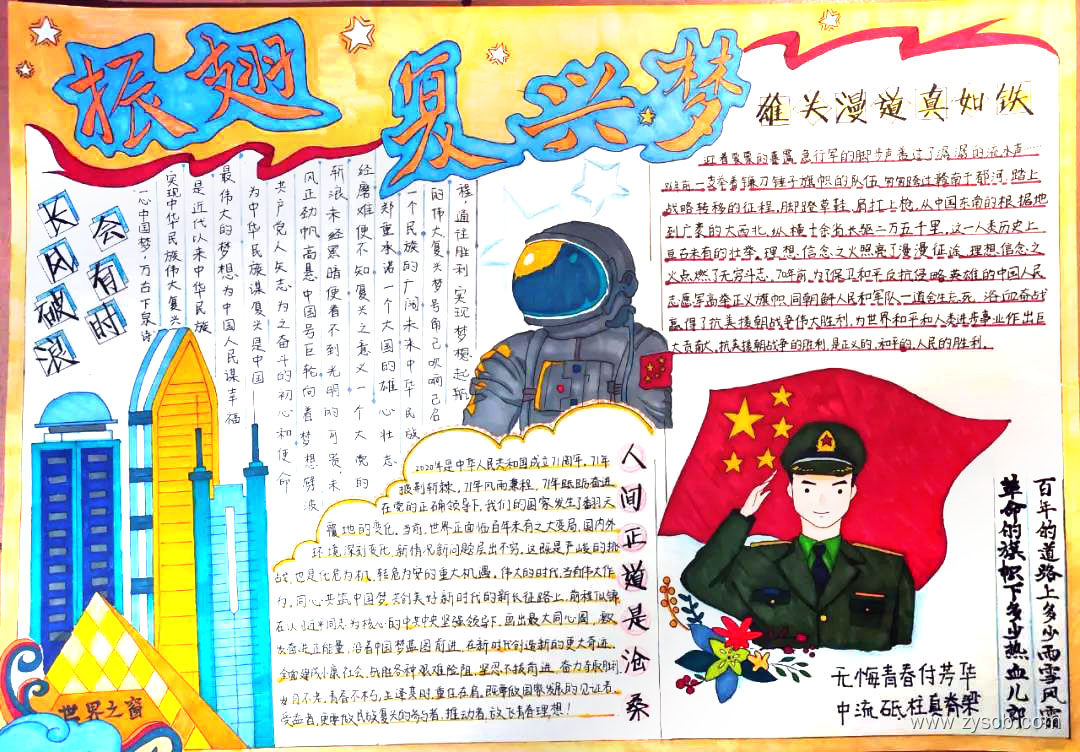 振翅
复兴梦
雄关漫道真如铁
长风破浪
会有时
一心中国梦,万古下泉诗
实现中华民族伟大复兴
是近代以来中华民族
最伟大的梦想 为中国人民谋幸福
为中华民族谋复兴是中国
共产党人矢志为之奋斗的初心和使命
风正劲帆高悬 中国号巨轮向着梦想劈波
斩浪 未经黑暗便看不到光明的可贵,未
经磨难便不知复兴之意义 一个大党的
郑重承诺 一个大国的雄心壮志
一个民族的广阔未来 中华民族
的伟大复兴梦号角已吹响已启
程,通往胜利 实现梦想 起航
急行军的脚步声盖过了潺潺的流水声……
一支举着镰刀锤子旗帜的队伍,匆匆跨过赣南于都河,踏上
战略转移的征程,脚蹬草鞋,肩扛上枪,从中国东南的根据地
到广袤的大西北,纵横十余省长驱二万五千里,这一人类历史上
亘古未有的壮举,理想、信念之火照亮了漫漫征途,理想、信念之
火点燃了无穷斗志,70年前,为了保卫和平反抗侵略英雄的中国人民
志愿军高举正义旗帜,同朝鲜人民和军队一道舍生忘死、浴血奋战
赢得了抗美援朝战争伟大胜利,为世界和平和人类进步事业作出巨
大贡献大,抗美援朝战争的胜利,是正义的、和平的、人民的胜利。
2020年是中华人民共和国成立71周年,71年
披荆斩棘,71年风雨兼程,71年砥砺奋进
在党的正确领导下,我们的国家发生了翻天
覆地的变化,当前,世界正面临百年未有之大变局,国内外
环境深刻变化,新情况新问题层出不穷,这既是严峻的挑
战,也是化危为机,转危为安的重大机遇,伟大的时代,当有伟大作
为,同心共筑中国梦,共创美好新时代的新长征路上,前程似锦
在以习近平同志为核心的中共中央坚强领导下,画出最大同心圆,凝
发奋进正能量,沿着中国梦蓝图前进,在新时代创造新的更大奇迹
全面建成小康社会,战胜各种艰难险阻,坚忍不拔前进,奋力夺取胜利
岁月不老,青春不朽,生逢其时,重任在肩,既要做国家发展的见证者
受益者,更要做民族复兴的参与者、推动者,放飞青春理想!
人间正道是沧桑
世界之窗
百年的道路上多少雨雪风霜
革命的旗帜下多少热血儿郎
无悔青春付芳华
中流砥柱真脊梁
www.zysob.com